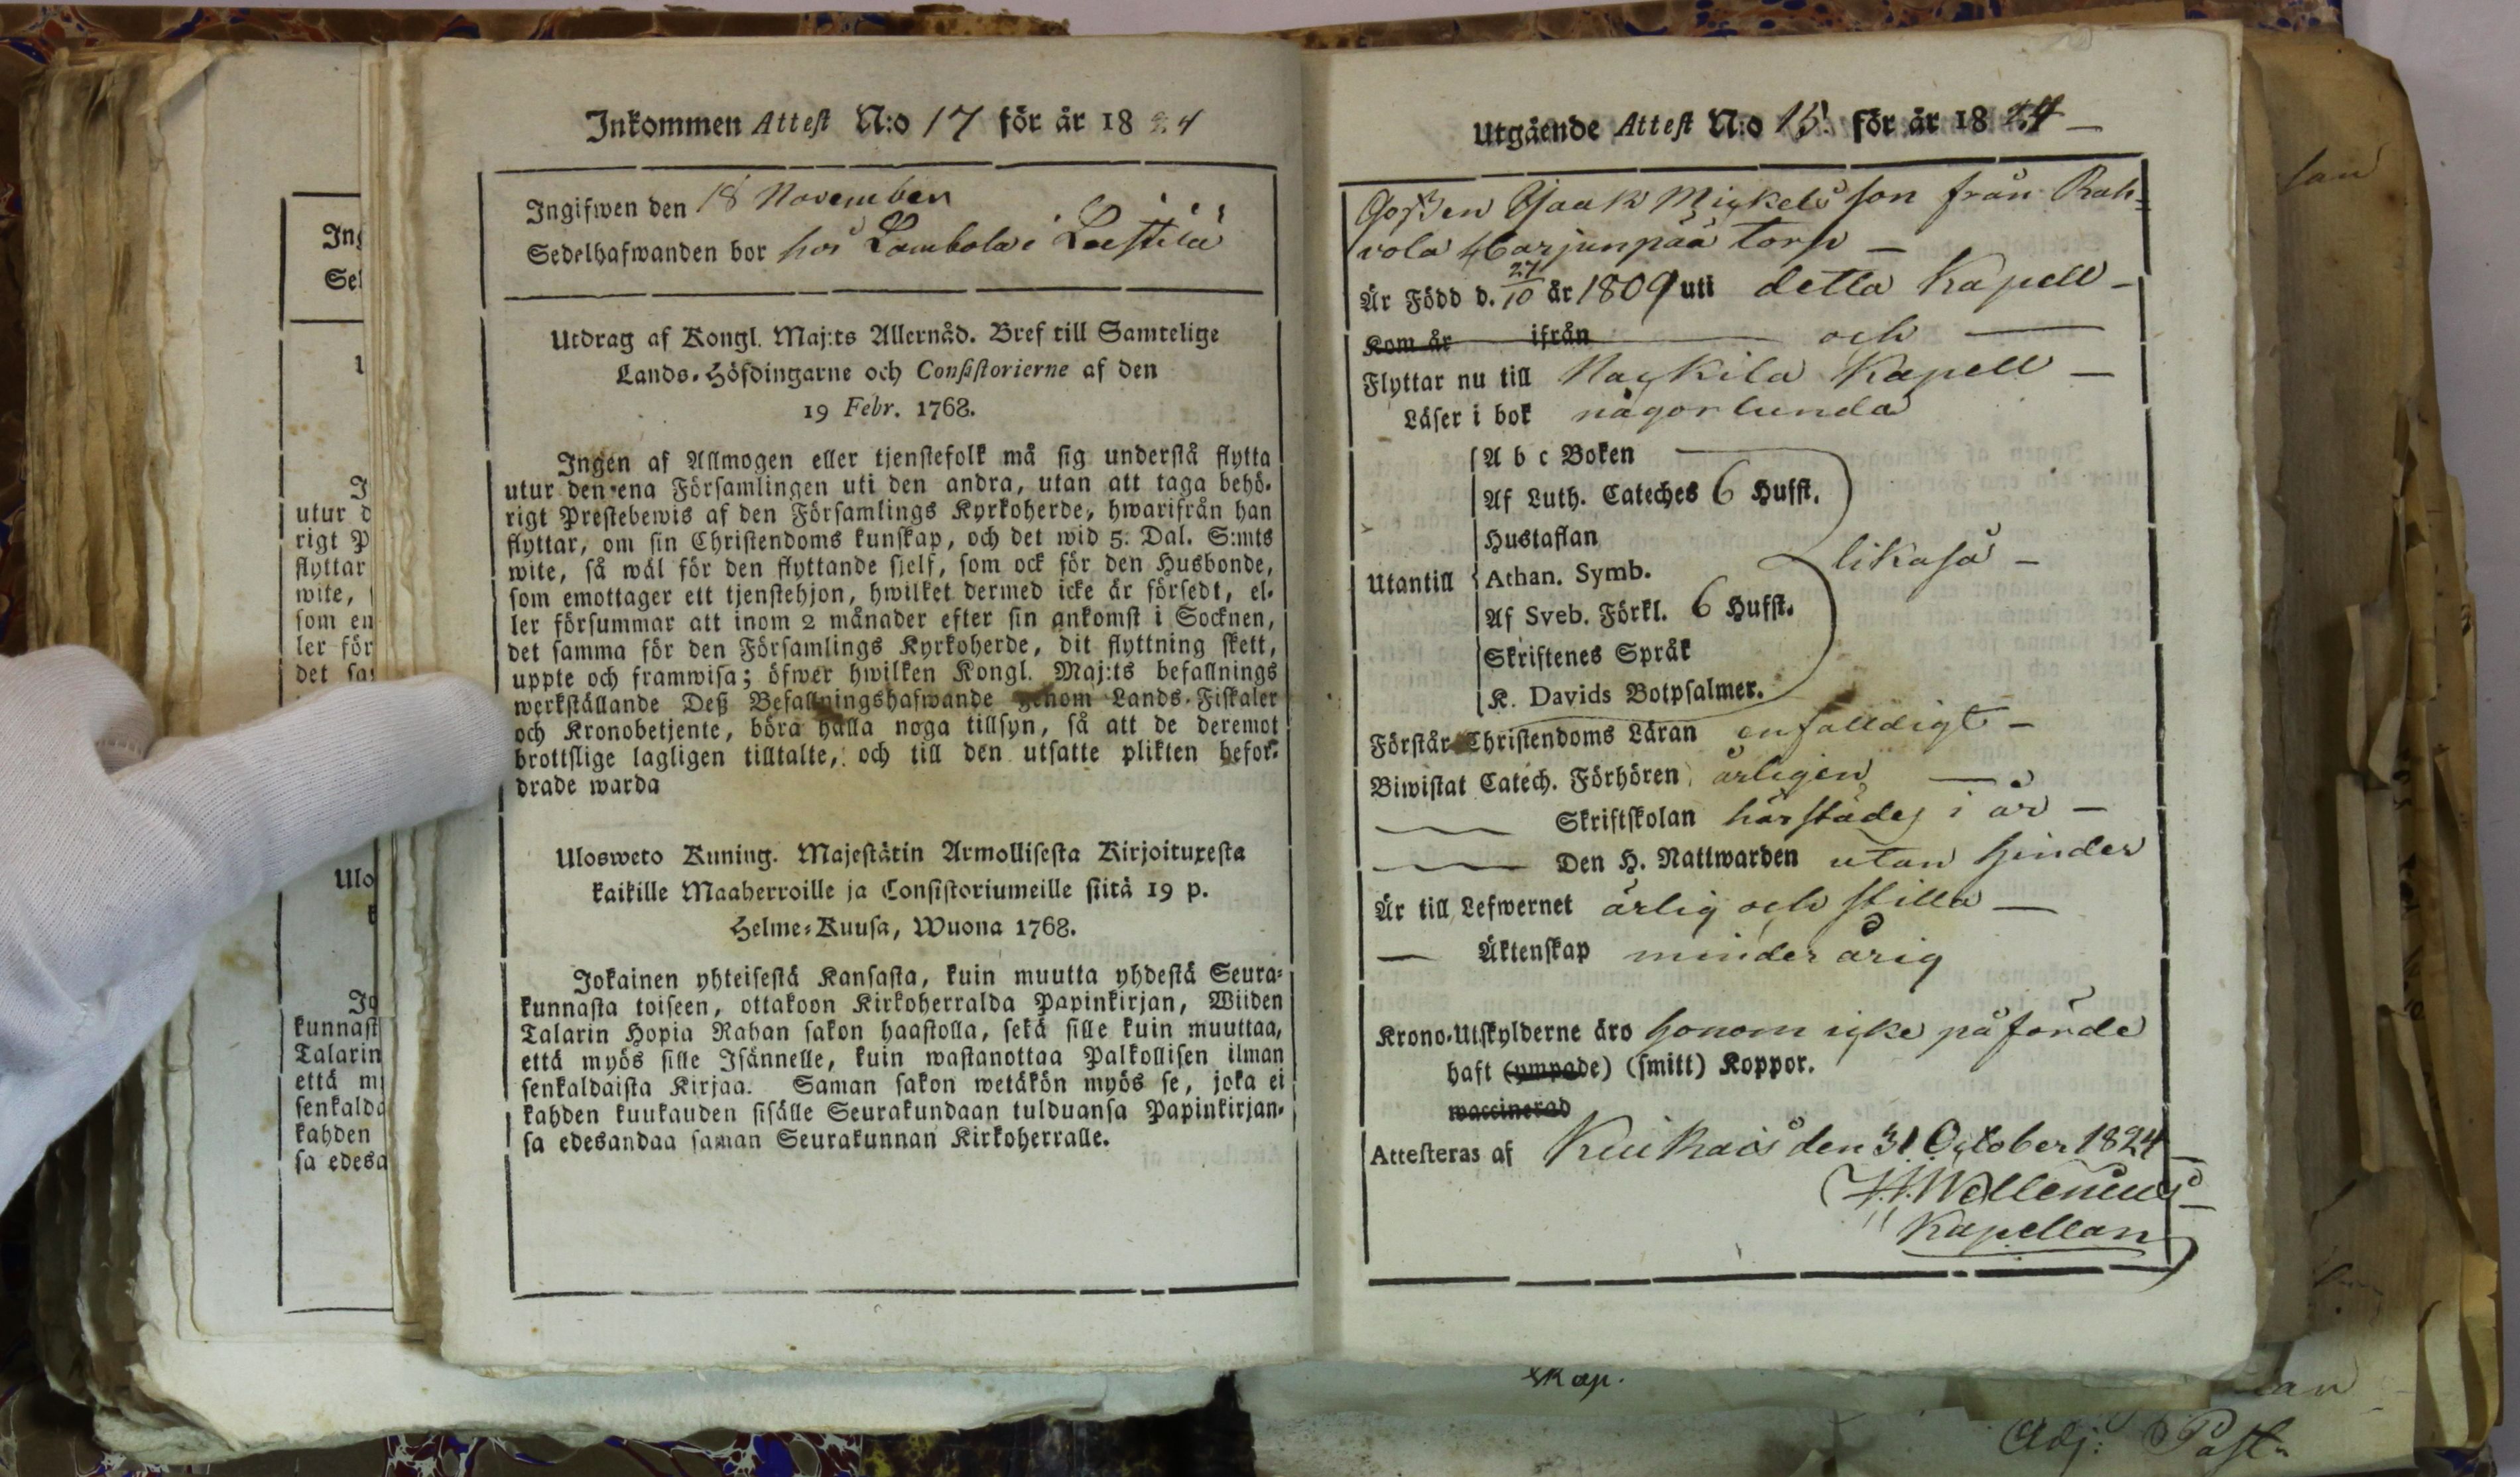 Inkommen Attest N:o 17 för år 1824
Ingifwen den 18 November
Sedelhafwanden bor hos Lambola i Leistilä
Utdrag af Kongl. Maj:ts Allernåd. Bref till Samtelige
Lands-Höfdingarne och Consistorierne af den
19 Febr. 1768.
Ingen af Allmogen eller tjenstefolk må sig understå flytta
utur den ena Församlingen uti den andra, utan att taga behö-
rigt Prestebewis af den Församlings Kyrkoherde, hwarifrån han
flyttar, om sin Christendoms kunskap, och det wid 5. Dal. S:mts
wite, så wäl för den flyttande sjelf, som ock för den Husbonde,
som emottager ett tjenstehjon, hwilket dermed icke är försedt, el-
ler försummar att inom 2 månader efter sin ankomst i Socknen,
det samma för den Församlings Kyrkoherde, dit flyttning skett,
uppte och framwisa; öfwer hwilken Kongl. Maj:ts befallnings
werkställande Deß Befallningshafwande genom Lands-Fiskaler
och Kronobetjente, böra hålla noga tillsyn, så att de deremot
brottslige lagligen tilltalte, och till den utsatte plikten befor-
drade warda
Ulosweto Kuning. Majestätin Armollisesta Kirjoituxesta
kaikille Maaherroille ja Consistoriumeille siitä 19 p.
Helme-Kuusa, Wuona 1768.
Jokainen yhteisestä Kansasta, kuin muutta yhdestä Seura-
kunnasta toiseen, ottakoon Kirkoherralda Papinkirjan, Wiiden
Talarin Hopia Rahan sakon haastolla, sekä sille kuin muuttaa,
että myös sille Isännelle, kuin wastanottaa Palkollisen ilman
senkaldaista Kirjaa. Saman sakon wetäkön myös se, joka ei
kahden kuukauden sisälle Seurakundaan tulduansa Papinkirjan-
sa edesandaa saman Seurakunnan Kirkoherralle.
Utgående Attest N:o 15. för år 1824
Goßen Isaak Mickelsson från Rah-
vola Harjunpää torp
Är Född d. 27/10 år 1809 uti detta Kapell
Kom år ifrån och
Flyttar nu till Nackila Kapell
Läser i bok någorlunda
A b c Boken
Af Luth. Cateches 6 Hufst.
Hustaflan
Utantill Athan. Symb. likaså
Af Sveb. Förkl. 6 Hufst.
Skriftenes Språk
K. Davids Botpsalmer.
Förstår Christendoms Läran enfalldigt
Biwistat Catech. Förhören årligen
Skriftskolan härstädes i år
Den H. Nattwarden utan hinder
Är till Lefwernet ärlig och stilla
Äktenskap minderårig
Krono-Utskylderne äro honom icke påförde
haft (ympade) (smitt) Koppor.
waccinerad
Attesteras af Kiukais den 31 October 1824
H. Wellenius
Kapellan
skap.
Adj: Past.
Ing
utur d
rigt P
flyttar
wite,
som em
ler för
det sa
Ulo
Jo
kunnast
Talarin
että m
senkalda
kahden
sa edesa